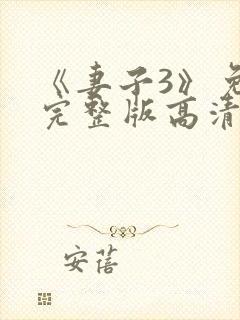 《妻子3》免
完整版高清
安蓓